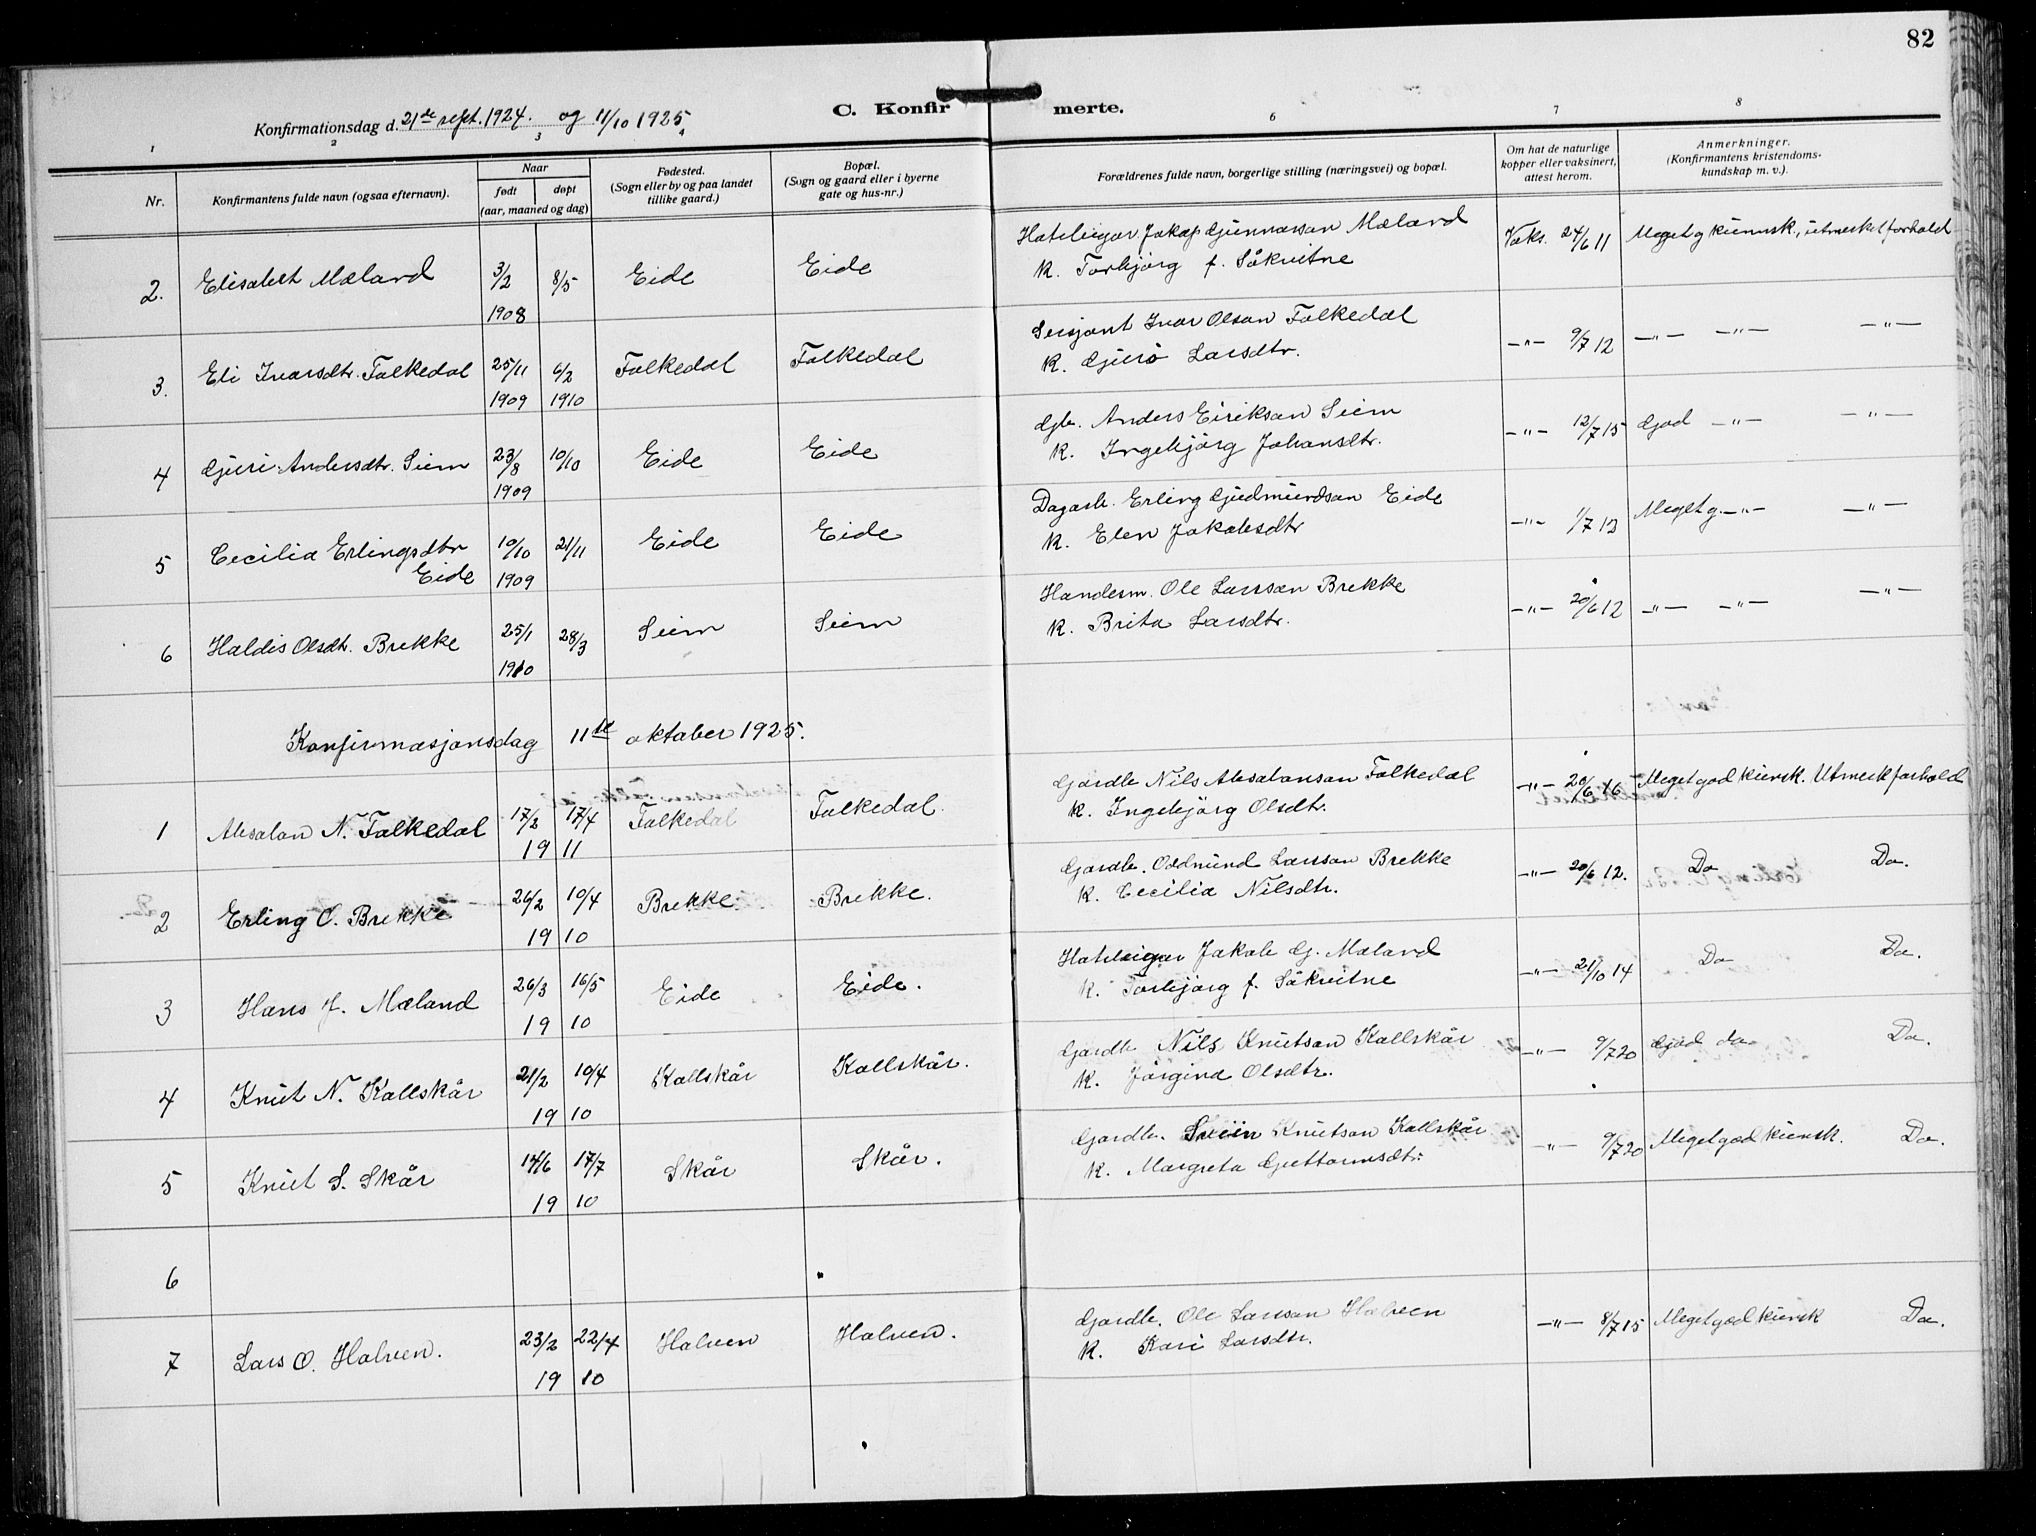 82
C. Konfirmerte.
Konfirmationsdag d. 21de sept. 1924. og 11/10 1925
1 2 3 4 6 7 8
Nr.
Konfirmantens fulde navn (ogsaa efternavn).
Naar
født døpt
(aar, maaned og dag)
Fødested.
(Sogn eller by og paa landet
tillike gaard.)
Bopæl.
(Sogn og gaard eller i byerne
gate og hus-nr.)
Forældrenes fulde navn, borgerlige stilling (næringsvei) og bopæl.
Om hat de naturlige
kopper eller vaksinert,
attest herom.
Anmerkninger.
(Konfirmantens kristendoms-
kundskap m. v.).
2. Elisabet Mæland 3/2 1908 8/5 Eide Eide
Hoteleigar Jakop Gunnarson Mæland
K. Torbjörg f. Såkvitne
Vaks. 24/6 11 Meget g kunnsk., utmerket forhold
3. Eli Ivarsdtr. Folkedal 25/11 1909 6/2 1910 Folkedal Folkedal
Sersjant Ivar Olson Folkedal
K. Guro Larsdtr.
-"- 9/7 12 -"- -"- -"-
4 Guri Andersdtr. Seim 23/8 1909 10/10 Eide Eide
Gb. Anders Eirikson Seim
K. Ingebjörg Johansdtr.
-"- 12/7 15 God -"- -"-
5 Cecilia Erlingsdtr Eide 10/10 1909 21/11 Eide Eide
Dagarb. Erling Gudmundson Eide
K. Elen Jakobsdtr
-"- 1/7 13 Meget g. -"- -"-
6 Haldis Olsdtr. Brekke 25/1 1910 28/3 Seim Seim
Handesm. Ole Larsson Brekke
K. Brita Larsdtr.
-"- 20/6 12 -"- -"- -"-
Konfirmasjonsdag 11te oktober 1925.
1 Absalon N. Folkedal 17/2 17/4 19 11 Folkedal Folkedal.
Gardb Nils Absalonson Folkedal
K. Ingebjörg Olsdtr.
-"- 20/6 16 Meget god kunsk. Utmerk forhold
2 Erling O. Brekke 26/2 10/4 19 10 Brekke Brekke.
Gardb. Oddmund Larsson Brekke
K. Cecilia Nilsdtr.
-"- 20/6 12. Do Do.
3 Hans J. Mæland 26/3 16/5 19 10 Eide Eide.
Hoteleigar Jakob G. Mæland
K. Torbjörg f. Såkvitne
-"- 21/10 14 Do Do.
4 Knut N. Kollskår 21/2 10/4 19 10 Kollskår Kollskår.
Gardb Nils Knutson Kollskår
K. Jörgina Olsdtr.
-"- 9/7 20 God do Do.
5 Knut S. Skår 14/6 17/7 19 10 Skår Skår.
Gardb. Svein Knutson Kollskår
K. Margreta Guttormsdtr.
-"- 9/7 20 Meget god kunsk. Do.
6
7 Lars O. Halven. 23/2 22/4 19 10 Halven Halven.
Gardb. Ole Larsson Halven
K. Kari Larsdtr.
-"- 8/7 15 Meget god kunsk Do.